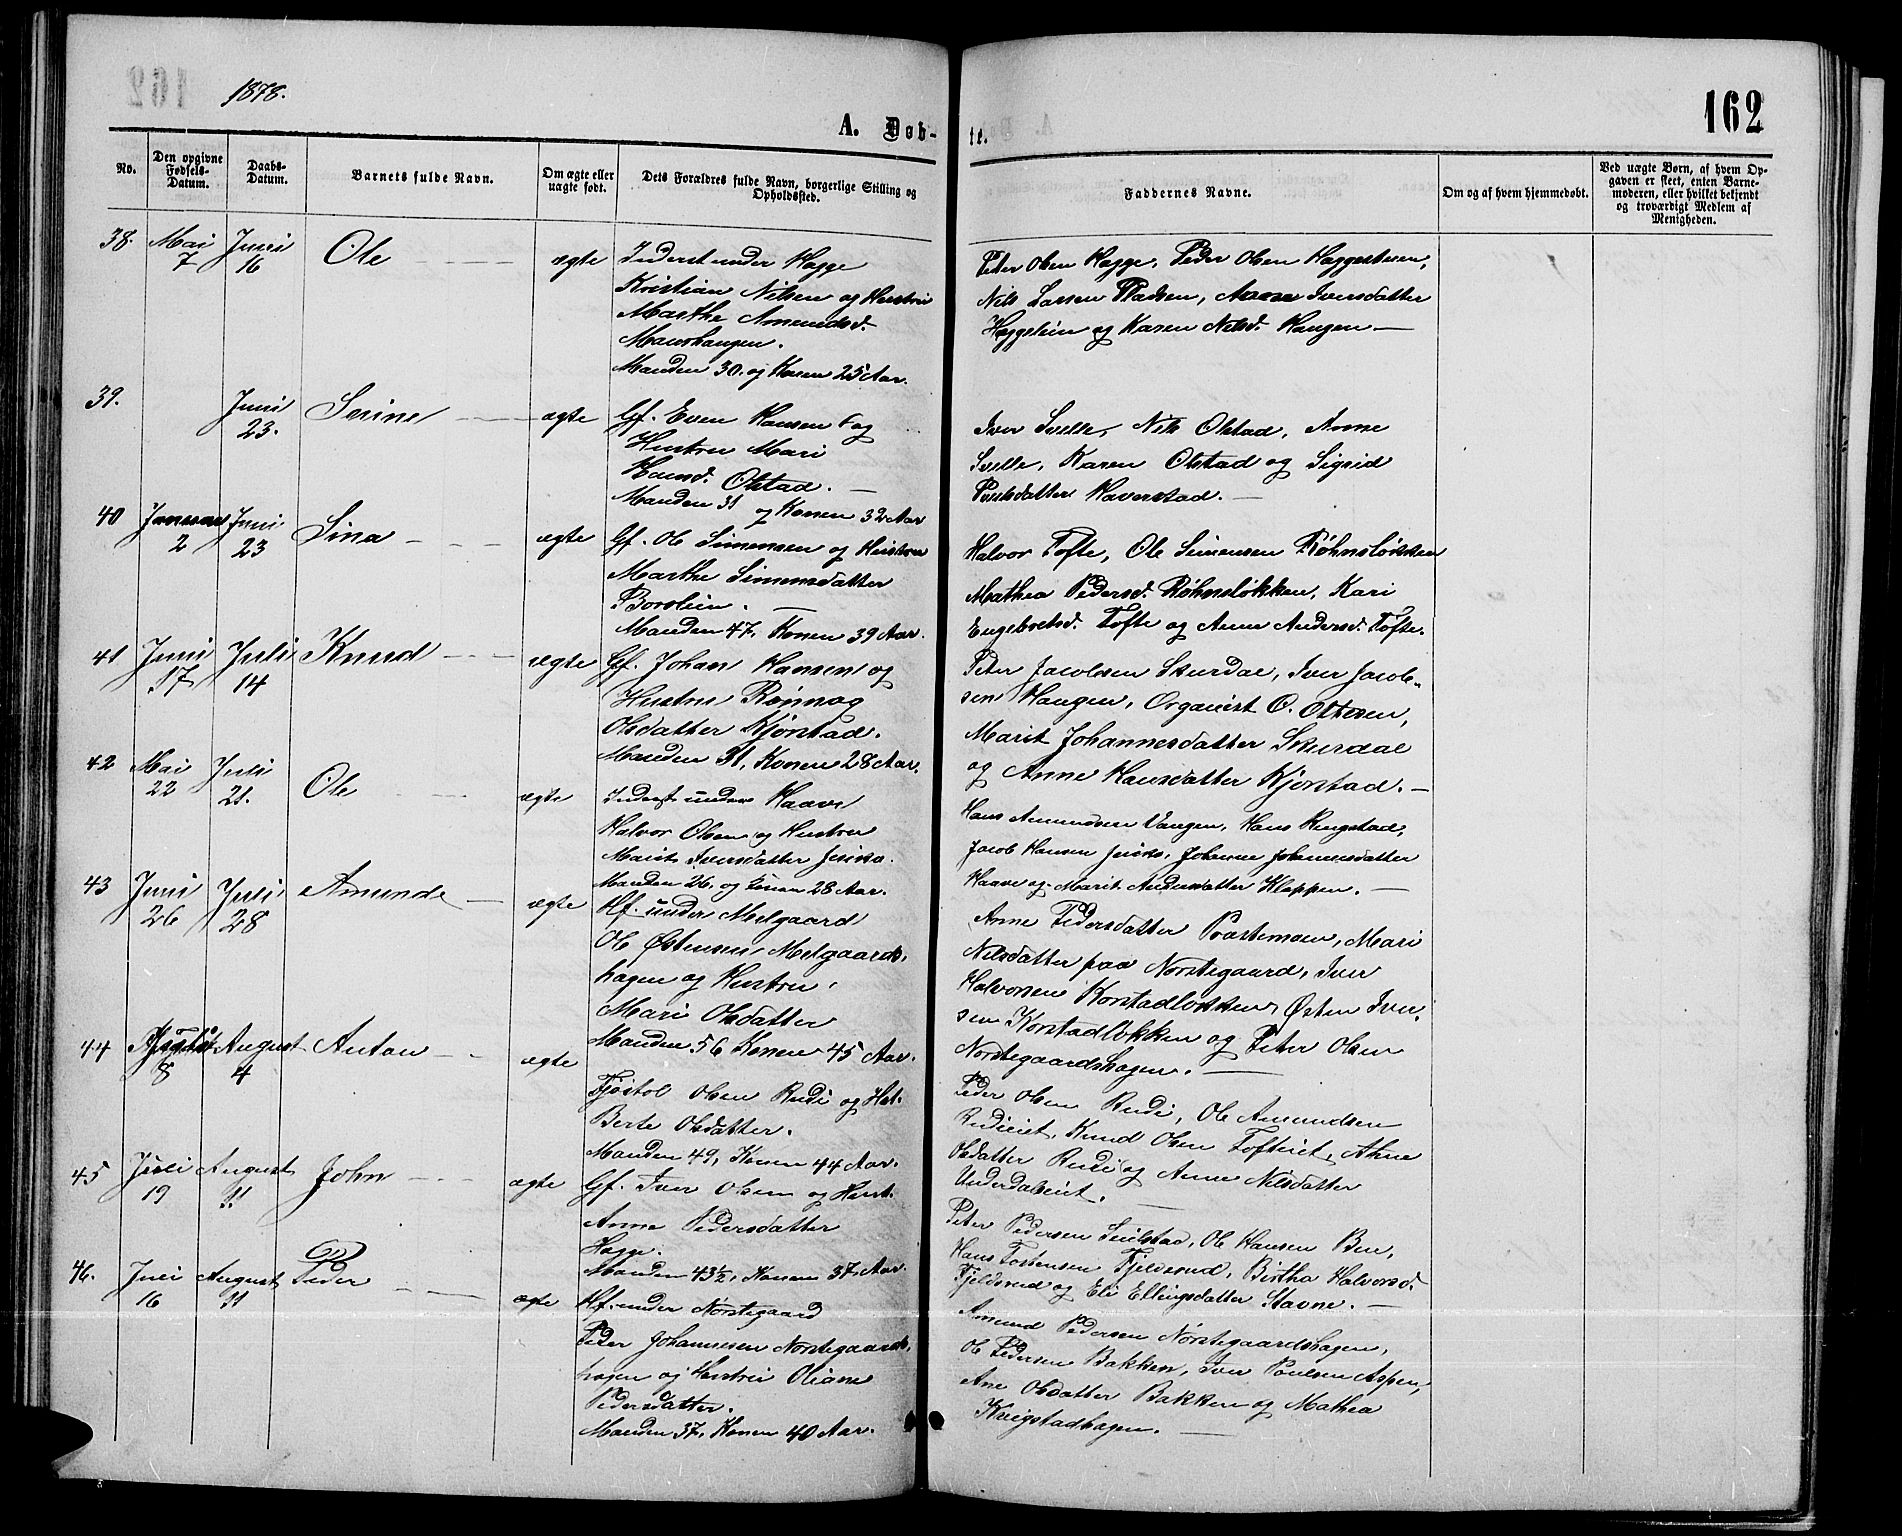 1878.
162
A. Døb-
te.
No.
Den opgivne
Fødsels-
Datum.
Daabs-
Datum.
Barnets fulde Navn.
Om ægte eller
uægte født.
Dets Forældres fulde Navn, borgerlige Stilling og
Opholdssted.
Faddernes Navne.
Om og af hvem hjemmedøbt.
Ved uægte Børn, af hvem Op-
gaven er skeet, enten Barne-
moderen, eller hvilket bekjendt
og troværdigt Medlem af
Menigheden.
38. Mai 7 Juni 16 Ole ægte
Inderst under Hagge
Kristian Nilsen og Hustru
Marthe Amundsd.
Maurhaugen.
Manden 30. og Konen 25 Aar.
Peter Olsen Hagge, Peder Olsen Haggesteien,
Nils Larsen Pladsen, Anne Iversdatter
Haggeleien og Karen Nilsd. Haugen
39. Juni 23. Serine ægte
Gf. Even Hansen og
Hustru Mari
Hansd. Olstad.
Manden 31 og Konen 32 Aar
Iver Svelle, Nils Olstad, Anne
Svelle, Karen Olstad og Sigrid
Poulsdatter Haverstad.
40 Januar 2 Juni 23 Sina ægte
Gf. Ole Simensen og Hustru
Marthe Simensdatter
Borslien.
Manden 47, Konen 39 Aar.
Halvor Tofte, Ole Simensen Bøhnsløkken
Mathea Pedersd. Bøhnsløkken, Kari
Engebretsd. Tofte og Anne Andersd. Tofte.
41 Juni 17 Juli 14 Knud ægte
Gf. Johan Hansen og
Hustru Rønnog
Olsdatter Kjørstad.
Manden 31, Konen 28 Aar.
Peter Jacobsen Skurdal, Iver Jacob-
sen Haugen, Organist O. Ottesen,
Marit Johannesdatter Skurdal
og Anne Hansdatter Kjørstad.
42 Mai 22 Juli 21. Ole ægte
Inderst under Haave
Halvor Olsen og Hustru
Marit Iversdatter
Manden 26, og Konen 28 Aar.
Hans Amundsen Vangen, Hans Ringstad,
Jacob Hansen Johanne Johannesdatter
Haave og Marit Andersdatter Kleppen.
43 Juni 26 Juli 28 Amunde ægte
Hf. under Melgaard
Ole Østensen Melgaards-
hagen og Hustru
Mari Olsdatter
Manden 56 Konen 45 Aar.
Anne Pedersdatter Præstemoen, Mari
Nilsdatter paa Norstegaard, Iver
Halvorsen Korstadløkken, Østen Iver-
sen Korstadløkken og Peter Olsen
Norstegaardshagen.
44 8 August 4 Anton ægte
Tjøstol Olsen Rudi og Hst.
Berte Olsdatter.
Manden 49, Konen 44 Aar.
Peder Olsen Rudi, Ole Amundsen
Rudieiet, Knud Olsen Tofteeiet, Ahne
Olsdatter Rudi og Anne Nilsdatter
Underdaleiet.
45 Juli 19 August 11 John ægte
Gf. Iver Olsen og Hust.
Anne Pedersdatter
Hagge.
Manden 43½, Konen 37 Aar.
Peter Pedersen Seielstad, Ole Hansen Bøe,
Hans Tostensen Fjeldsrud, Birtha Halvorsd.
Fjeldsrud og Eli Ellingsdatter Stavne.
46. Juli 16 August 11 Peder ægte
Hf. under Norstegaard
Peder Johannesen Norstegaards-
hagen og Hustru Oliane
Pedersdatter.
Manden 37, Konen 40 Aar.
Amund Pedersen Norstegaardshagen,
Ole Pedersen Bakken, Iver Poulsen Aspen,
Ane Olsdatter Bakken og Mathea
Krigstadhagen.